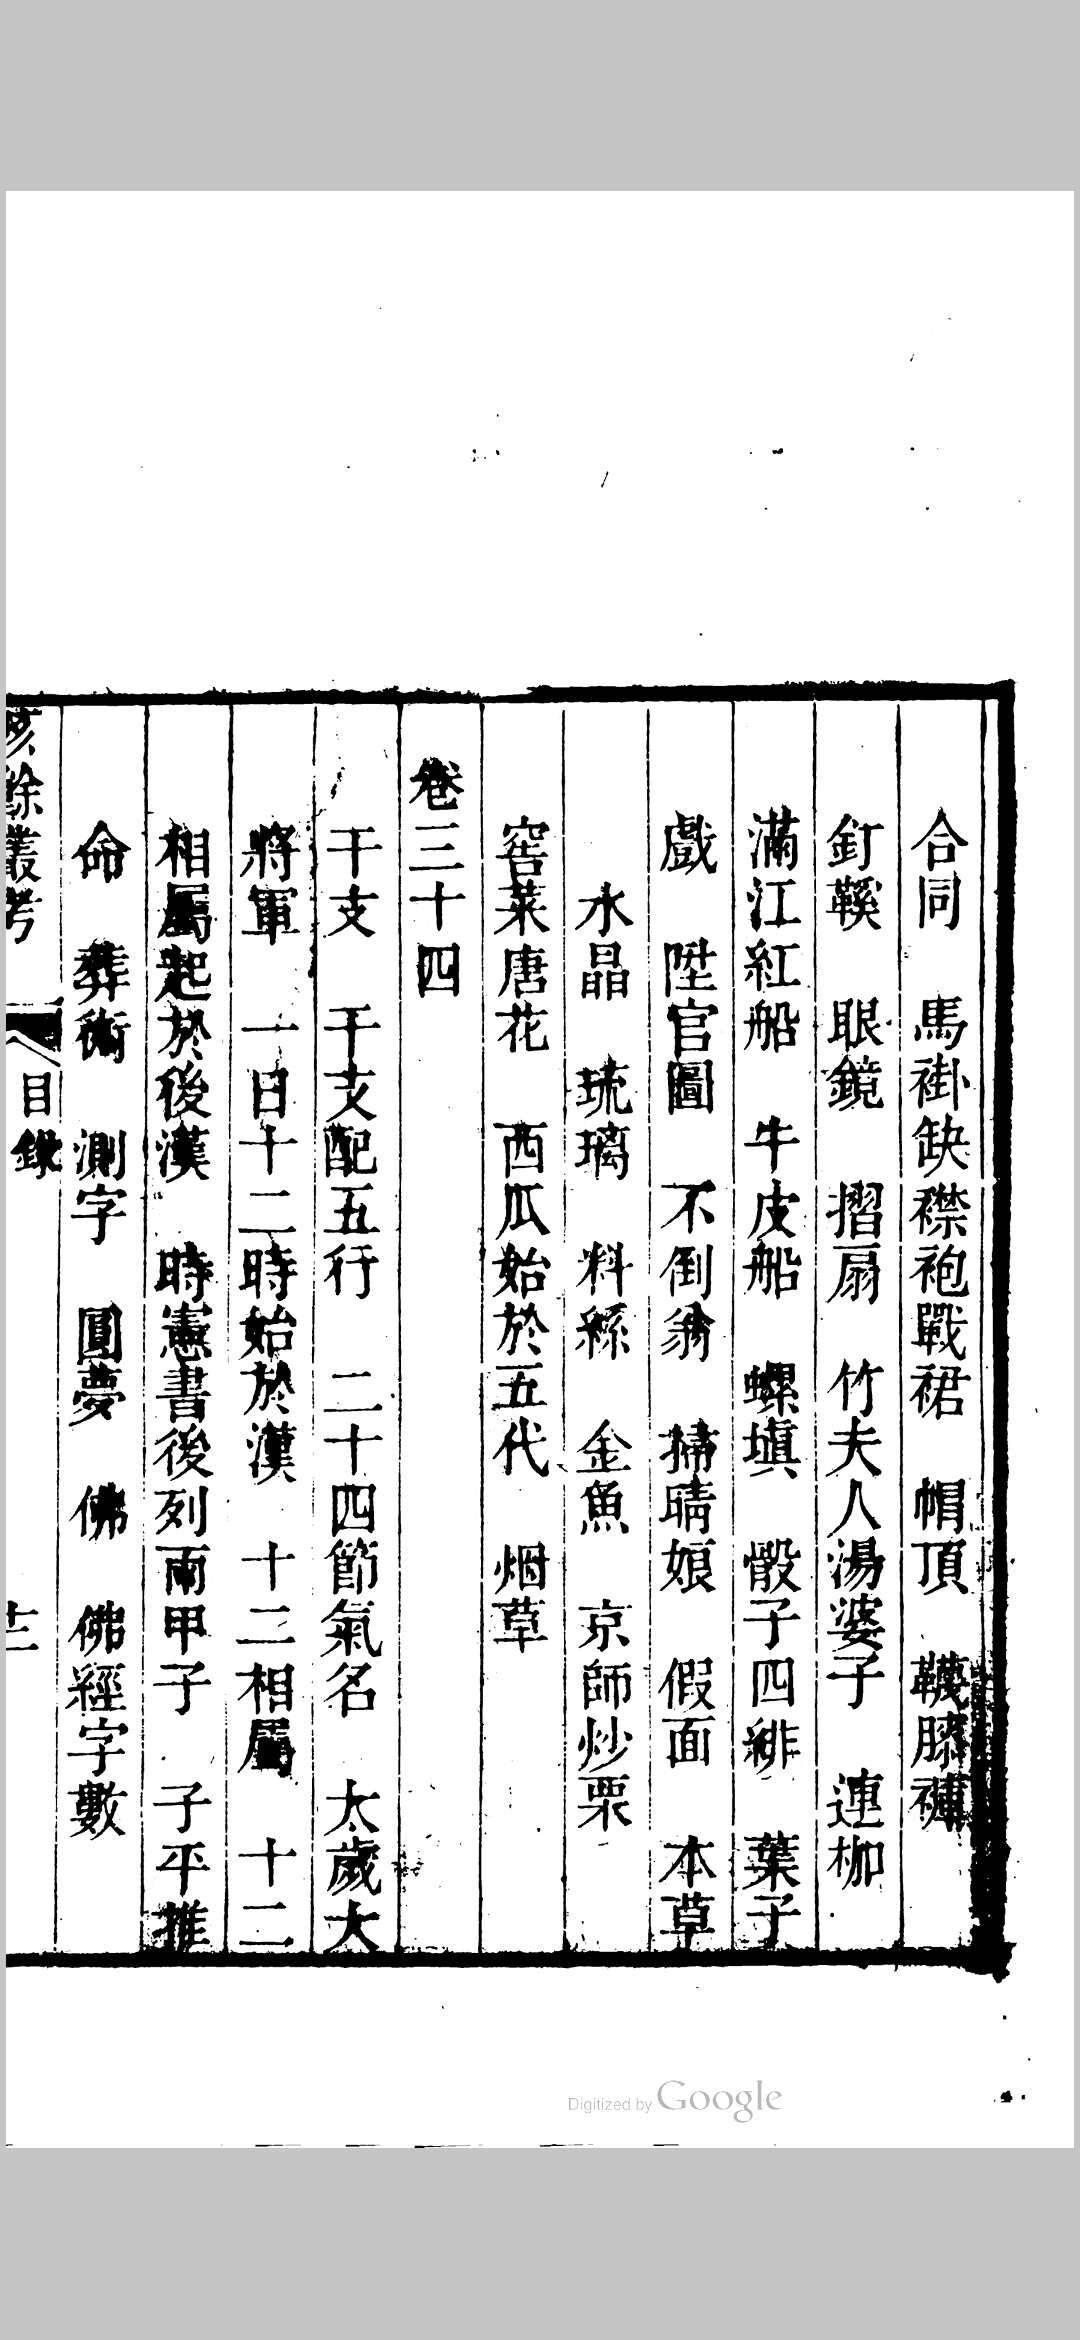 合同　馬褂缺襟袍戰裙　帽頂　韈膝褲
釘鞵　眼鏡　摺扇　竹夫人湯婆子　連枷
滿江紅船　牛皮船　螺塡　骰子四緋　葉子
戲　陞官圖　不倒翁　掃晴娘　假面　本草
水晶　琉璃　料絲　金魚　京師炒栗
窖菜唐花　西瓜始於五代　烟草
卷三十四
干支　干支配五行　二十四節氣名　太歲大
將軍　一日十二時始於漢　十二相屬　十二
相屬起於後漢　時憲書後列兩甲子　子平推
命　葬術　測字　圓夢　佛　佛經字數
陔餘叢考　目錄　十二
Digitized by Google